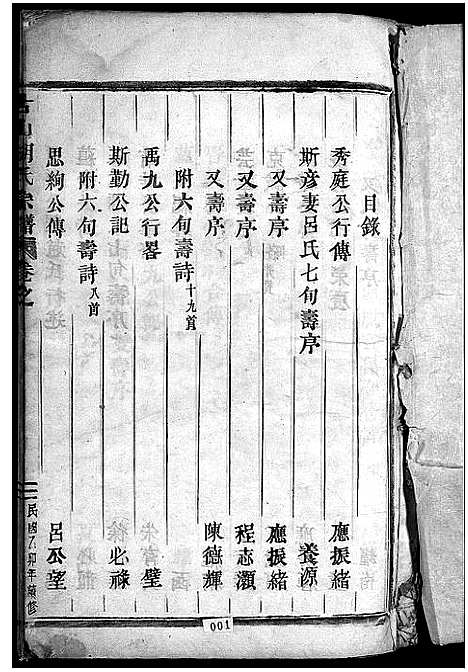 目錄
秀庭公行傳 應振緒
斯彥妻呂氏七旬壽序 養源
又壽序 應振緒
又壽序 程志灝
又壽序 陳德輝
附六旬壽詩十九首
禹九公行畧 璧
斯勤公記 徐必祿
附六旬壽詩八首
思絢公傳 呂公望
胡氏宗譜 卷之
民國乙卯年績修
001